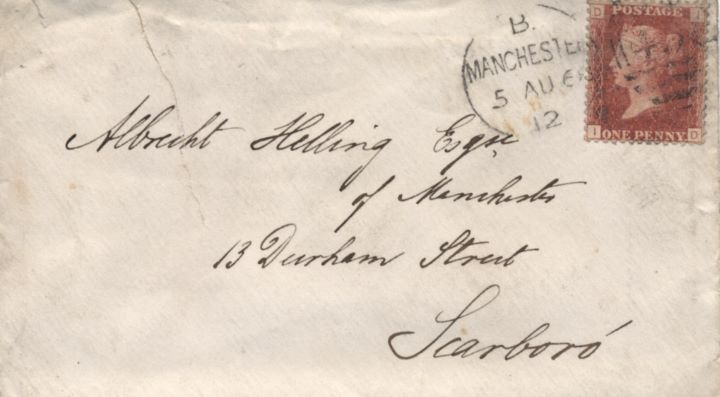 B.
MANCHESTER
5 AU 68
12
D I
POSTAGE
I ONE PENNY D
Albrecht Helling Esqre
of Manchester
13 Durham Street
Scarboro'